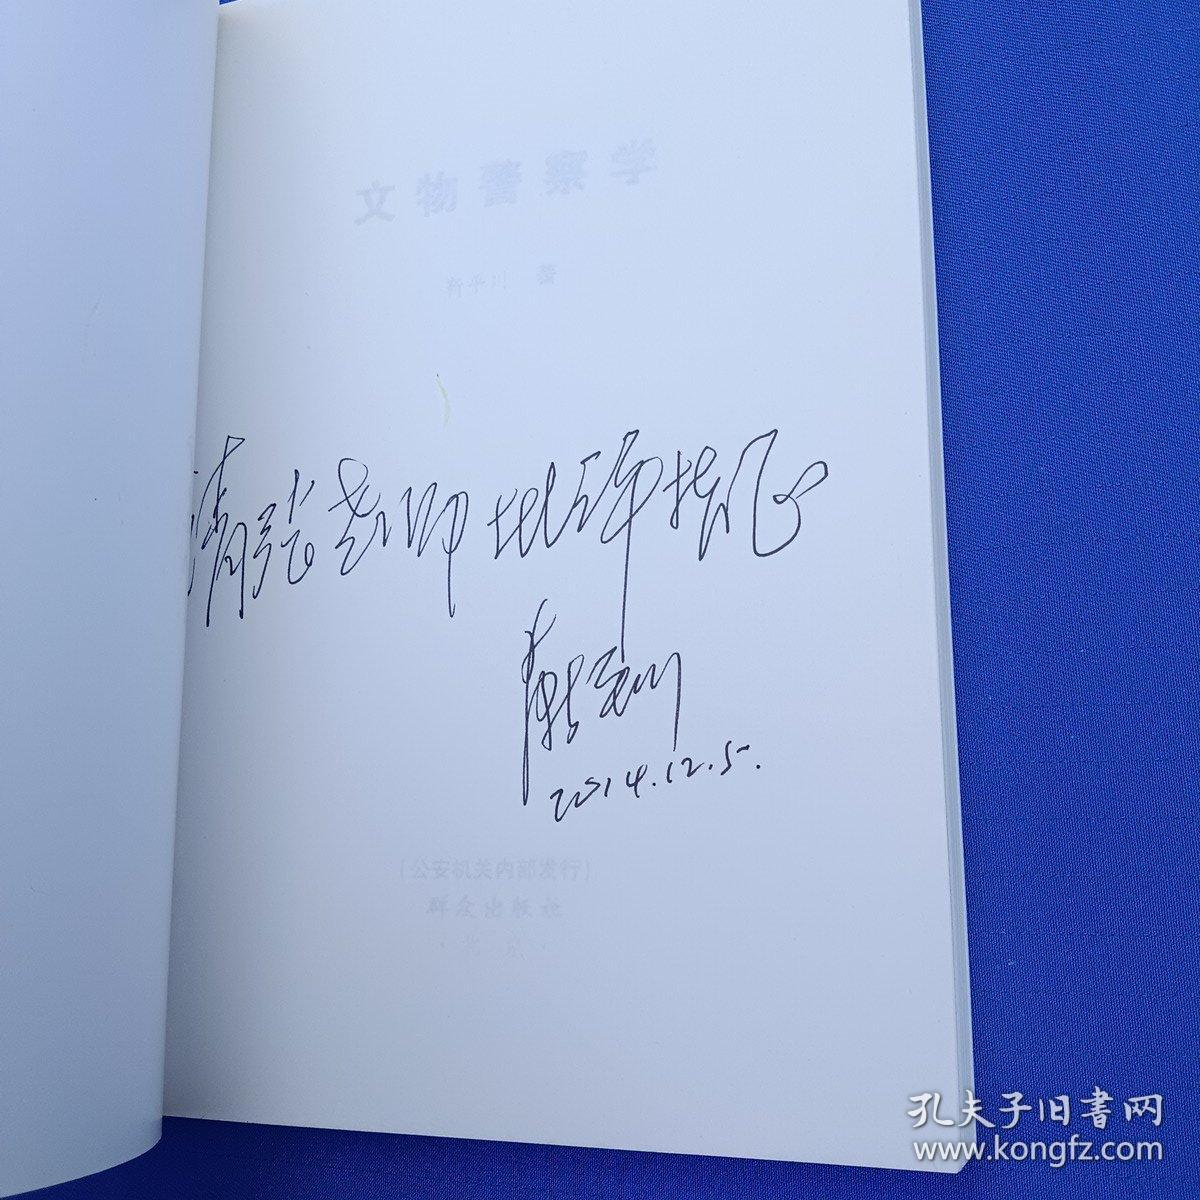 文物警察学
靳平川 著
请张老师批评指正
靳平川
2014.12.5.
(公安机关内部发行)
群众出版社
·北京·
孔夫子旧書网
www.kongfz.com